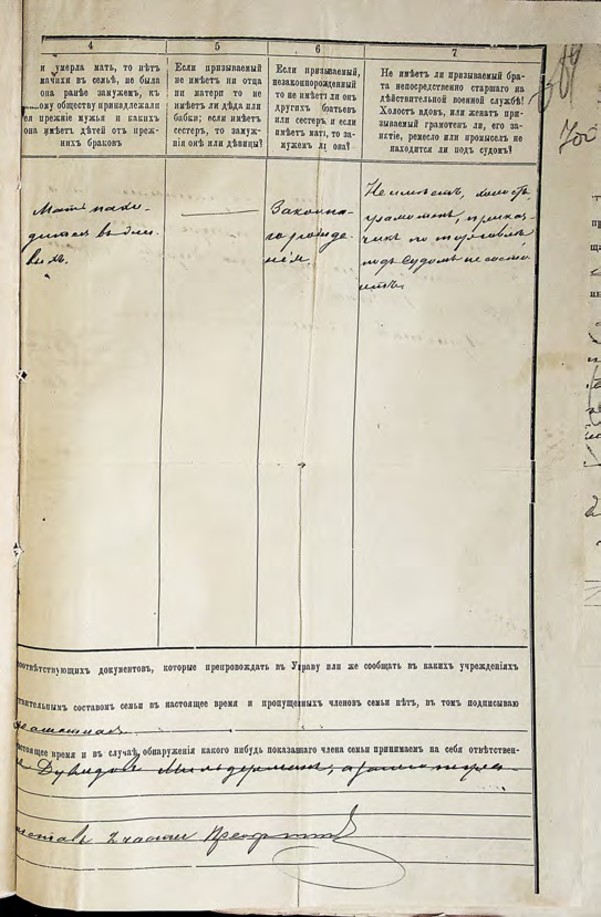 4
и умерла мать, то нѣтъ
мачихи въ семьѣ, не была
она ранѣе замужемъ, къ
обществу принадлежали
ея прежніе мужья и какихъ
она имѣетъ дѣтей отъ преж-
нихъ браковъ
5
Если призываемый
не имѣетъ ни отца
ни матери то не
имѣетъ ли дѣда или
бабки; если имѣетъ
сестеръ, то замуж-
нія онѣ или дѣвицы?
6
Если призываемый,
незаконнорожденный
то не имѣетъ ли онъ
другихъ братьевъ
или сестеръ и если
имѣетъ мать, то за-
мужемъ ли она?
7
Не имѣетъ ли призываемый бра-
та непосредственно старшаго на
дѣйствительной военной службѣ?
Холостъ вдовъ, или женатъ при-
зываемый грамотенъ ли, его за-
нятіе, ремесло или промыселъ не
находится ли подъ судомъ?
Мать нахо-
дится въ
Законна-
го рожде-
нія.
Не имѣетъ, холостъ,
грамотенъ, приказ-
чикъ по торговлѣ
подъ судомъ не состо
итъ.
соотвѣтствующихъ документовъ, которые препровождать въ Управу или же сообщать въ какихъ учрежденіяхъ
ствительнымъ составомъ семьи въ настоящее время и пропущенныхъ членовъ семьи нѣтъ, въ томъ подписываю
настоящее время и въ случаѣ обнаруженія какого нибудь показашаго члена семьи принимаемъ на себя отвѣтствен-
Дувидовъ Мильдерманъ,
2 части